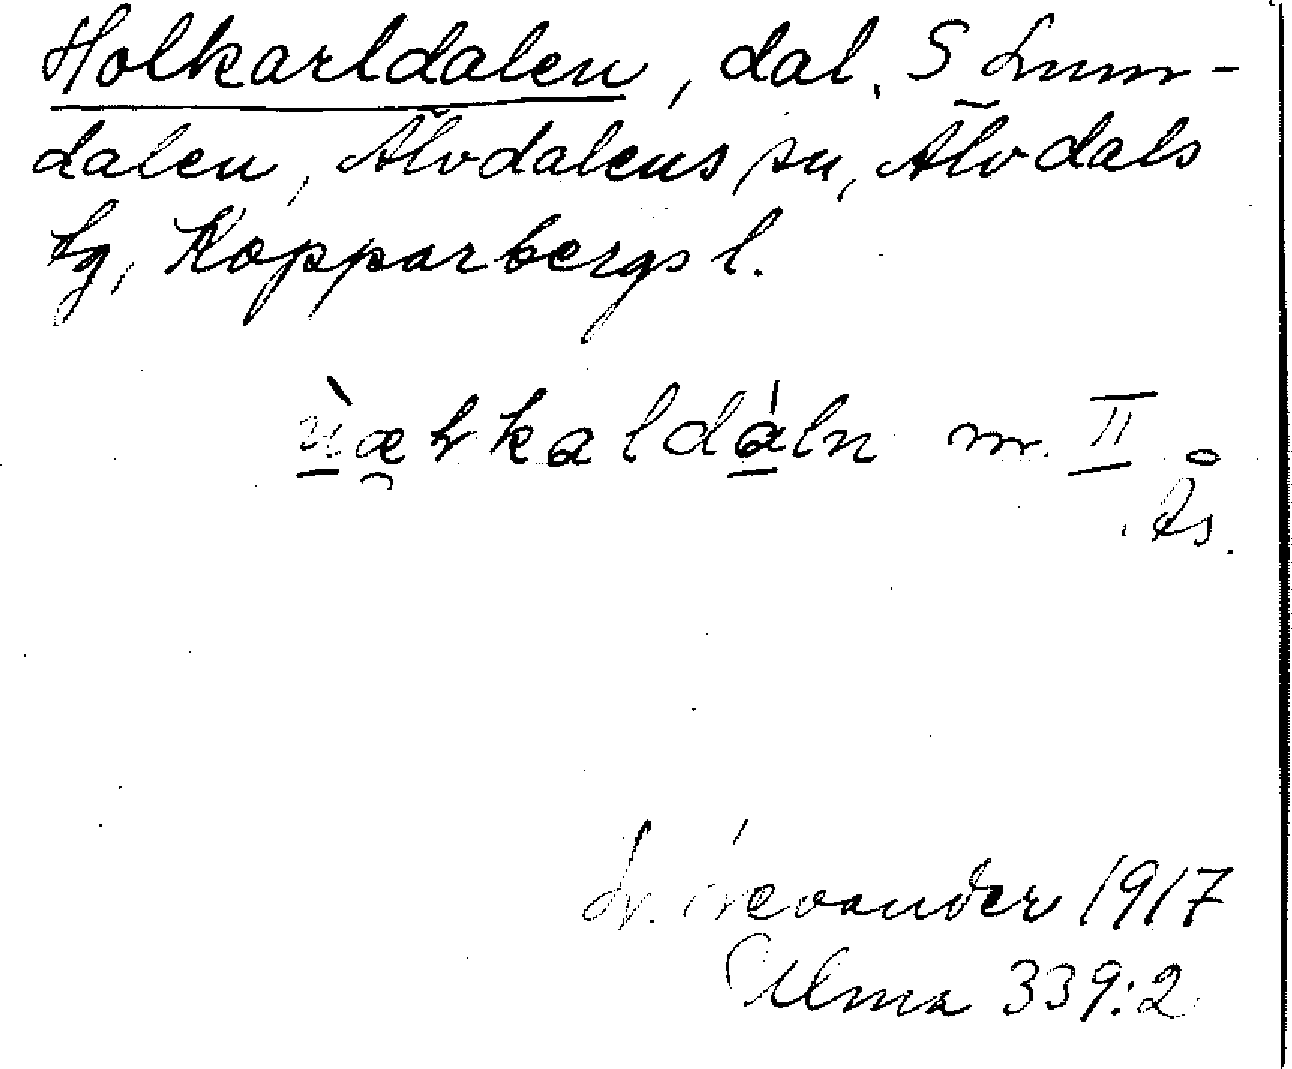 Holkarldalen, dal, S Lum-
dalen, Älvdalens sn, Älvdals
tg, Kopparbergs l.
m. II
Ås.
Levander 1917
Ulma 339:2